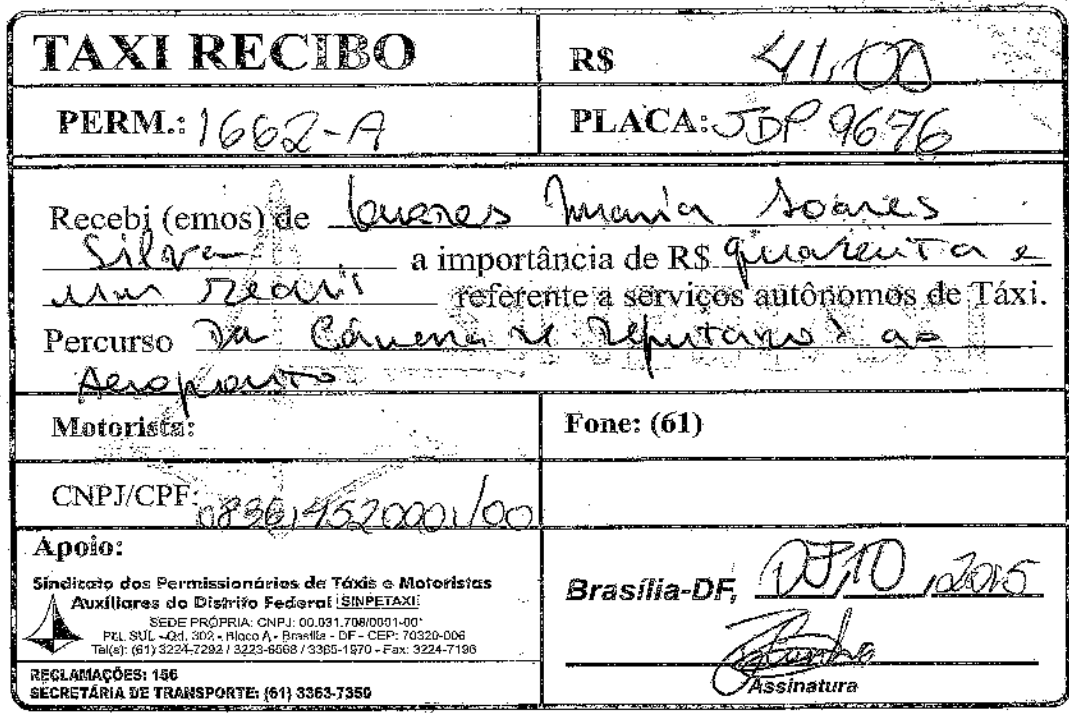 TAXI RECIBO
R$ 41,00
PERM.: 1662-A
PLACA: JDP 9676
Recebi (emos) de Maria Soares
Silva a importância de R$ quarenta e
um reais referente a serviços autônomos de Táxi.
Percurso Da Câmera de Deputados ao
Aeroporto
Motorista:
Fone: (61)
CNPJ/CPF:
Apoio:
Sindicato dos Permissionários de Táxis e Motoristas
Auxiliares do Distrito Federal SINPETAXI
SEDE PRÓPRIA: CNPJ: 00.031.708/0001-00
PCL SUL - Qd. 302 - Bloco A - Brasília - DF - CEP: 70320-006
Tel(s): (61) 3224-7292 / 3223-6568 / 3365-1970 - Fax: 3224-7196
RECLAMAÇÕES: 156
SECRETÁRIA DE TRANSPORTE: (61) 3363-7350
Brasília-DF, 10, 2015
Assinatura